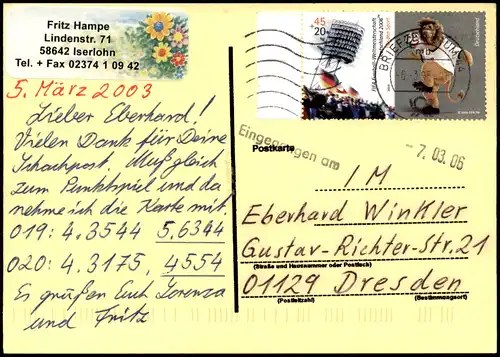 Fritz Hampe
Lindenstr. 71
58642 Iserlohn
Tel. + Fax 02374 1 09 42
5. März 2003
Lieber Eberhard!
Vielen Dank für Deine
Schachpost. Muß gleich
zum Punktspiel und da
nehme ich die Karte mit.
019: 4.3544 5.6344
020: 4.3175, 4554
Es grüßen Euch Lorenza
und Fritz
45
+20
BRIEFZENTRUM
Eingegangen am
-7. 03. 06
Postkarte
I M
Eberhard Winkler
Gustav-Richter-Str. 21
(Straße und Hausnummer oder Postfach)
01129 Dresden
(Postleitzahl) (Bestimmungsort)